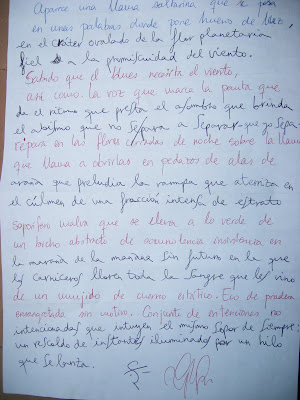 Aparece una llama saltarina que se posa
en unas palabras donde pone huevo de
en el cráter ovalado de la flor planetaria
fiel a la promiscuidad del viento.
Sabido que el blues necesita el viento,
así como la voz que marca la pauta que
da el ritmo que presta el asombro que brinda
el abismo que no separa a separar que yo
repara en las flores cerradas de noche sobre la llama
que llama a abrirlas en pedazos de alas de
araña que preludia la rampa que aterriza en
el cúlmen de una fracción intensa de estrato
soporífero malva que se eleva a lo verde de
un bicho abstracto de insistencia en
la maraña de la mañana sin futuro en la que
los carniceros lloren toda la sangre que les vino
de un mujido de cuerno Eco de
sin motivo. Conjunto de intenciones no
intencionadas que intuyen el mismo sopor de siempre:
un rescoldo de instantes iluminados por un hilo
que se